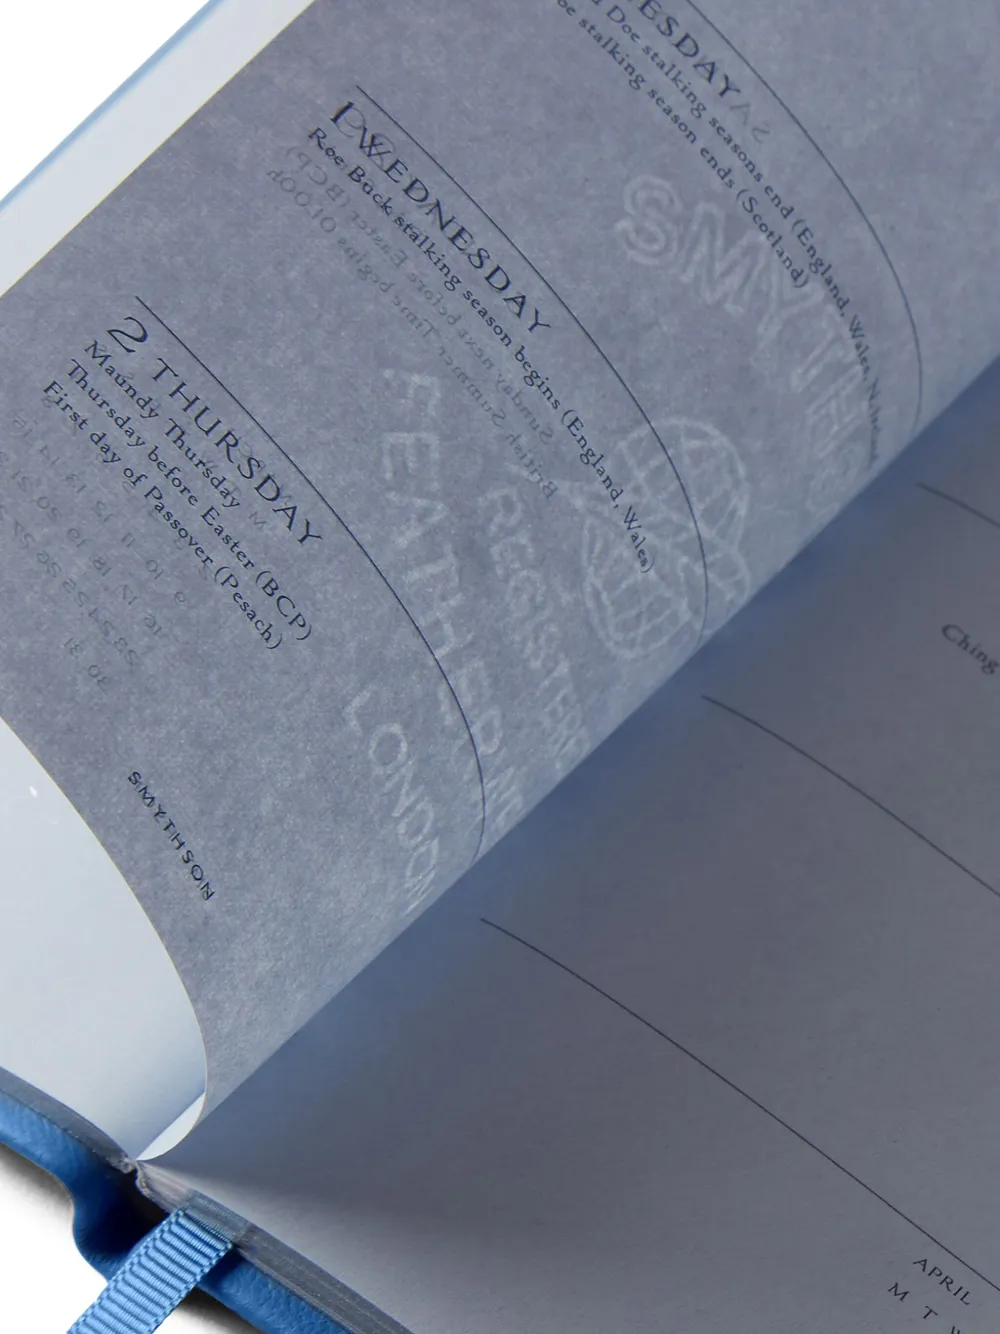 ESDAY
Doe stalking seasons end (England, Wales, N.Ireland
stalking season ends (Scotland)
1 WEDNESDAY
Roe Buck stalking season begins (England, Wales)
2 THURSDAY
Maundy Thursday
Thursday before Easter (BCP)
First day of Passover (Pesach)
SMYTHSON
SMYTH
REGISTERED
FEATHERW
LONDON
Ching
APRIL
M T W